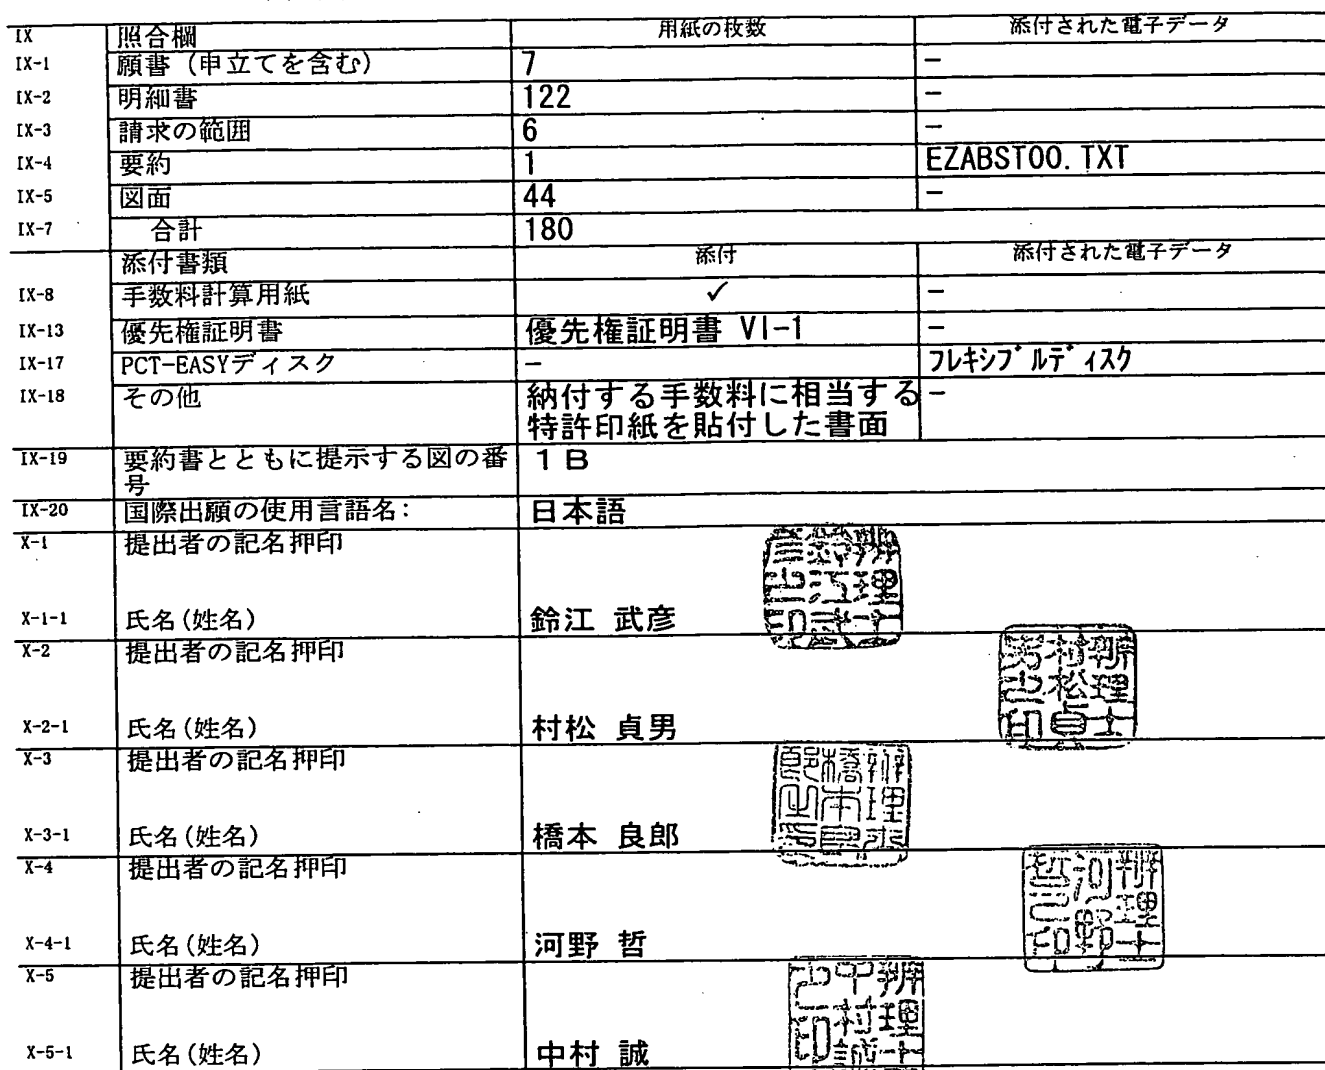 IX 照合欄 用紙の枚数 添付された電子データ
IX-1 願書（申立てを含む） 7 -
IX-2 明細書 122 -
IX-3 請求の範囲 6 -
IX-4 要約 1 EZABST00.TXT
IX-5 図面 44 -
IX-7 合計 180
添付書類 添付 添付された電子データ
IX-8 手数料計算用紙 ✓ -
IX-13 優先権証明書 優先権証明書 VI-1 -
IX-17 PCT-EASYディスク - フレキシブルディスク
IX-18 その他 納付する手数料に相当する -
特許印紙を貼付した書面
IX-19 要約書とともに提示する図の番 1B
号
IX-20 国際出願の使用言語名: 日本語
X-1 提出者の記名押印
弁理士鈴江武彦之印
X-1-1 氏名(姓名) 鈴江 武彦
X-2 提出者の記名押印
弁理士村松貞男之印
X-2-1 氏名(姓名) 村松 貞男
X-3 提出者の記名押印
X-3-1 氏名(姓名) 橋本 良郎
X-4 提出者の記名押印
X-4-1 氏名(姓名) 河野 哲
X-5 提出者の記名押印
X-5-1 氏名(姓名) 中村 誠